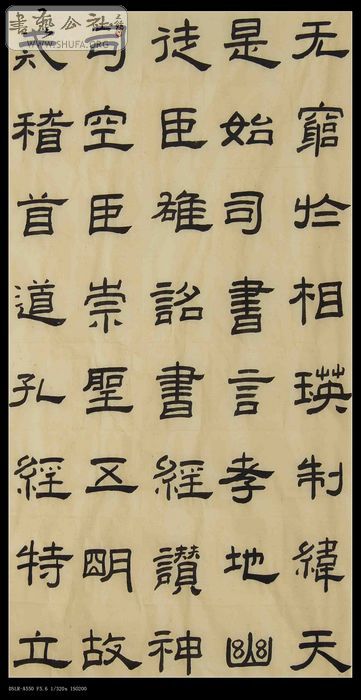 书艺公社
WWW.SHUFA.ORG
无窮於相瑛制緯天
是始司書言孝地幽
徒臣雄詔書經讚神
司空臣崇聖五明故
稽首道孔經特立
DSLR-A550 F5.6 1/320s ISO200